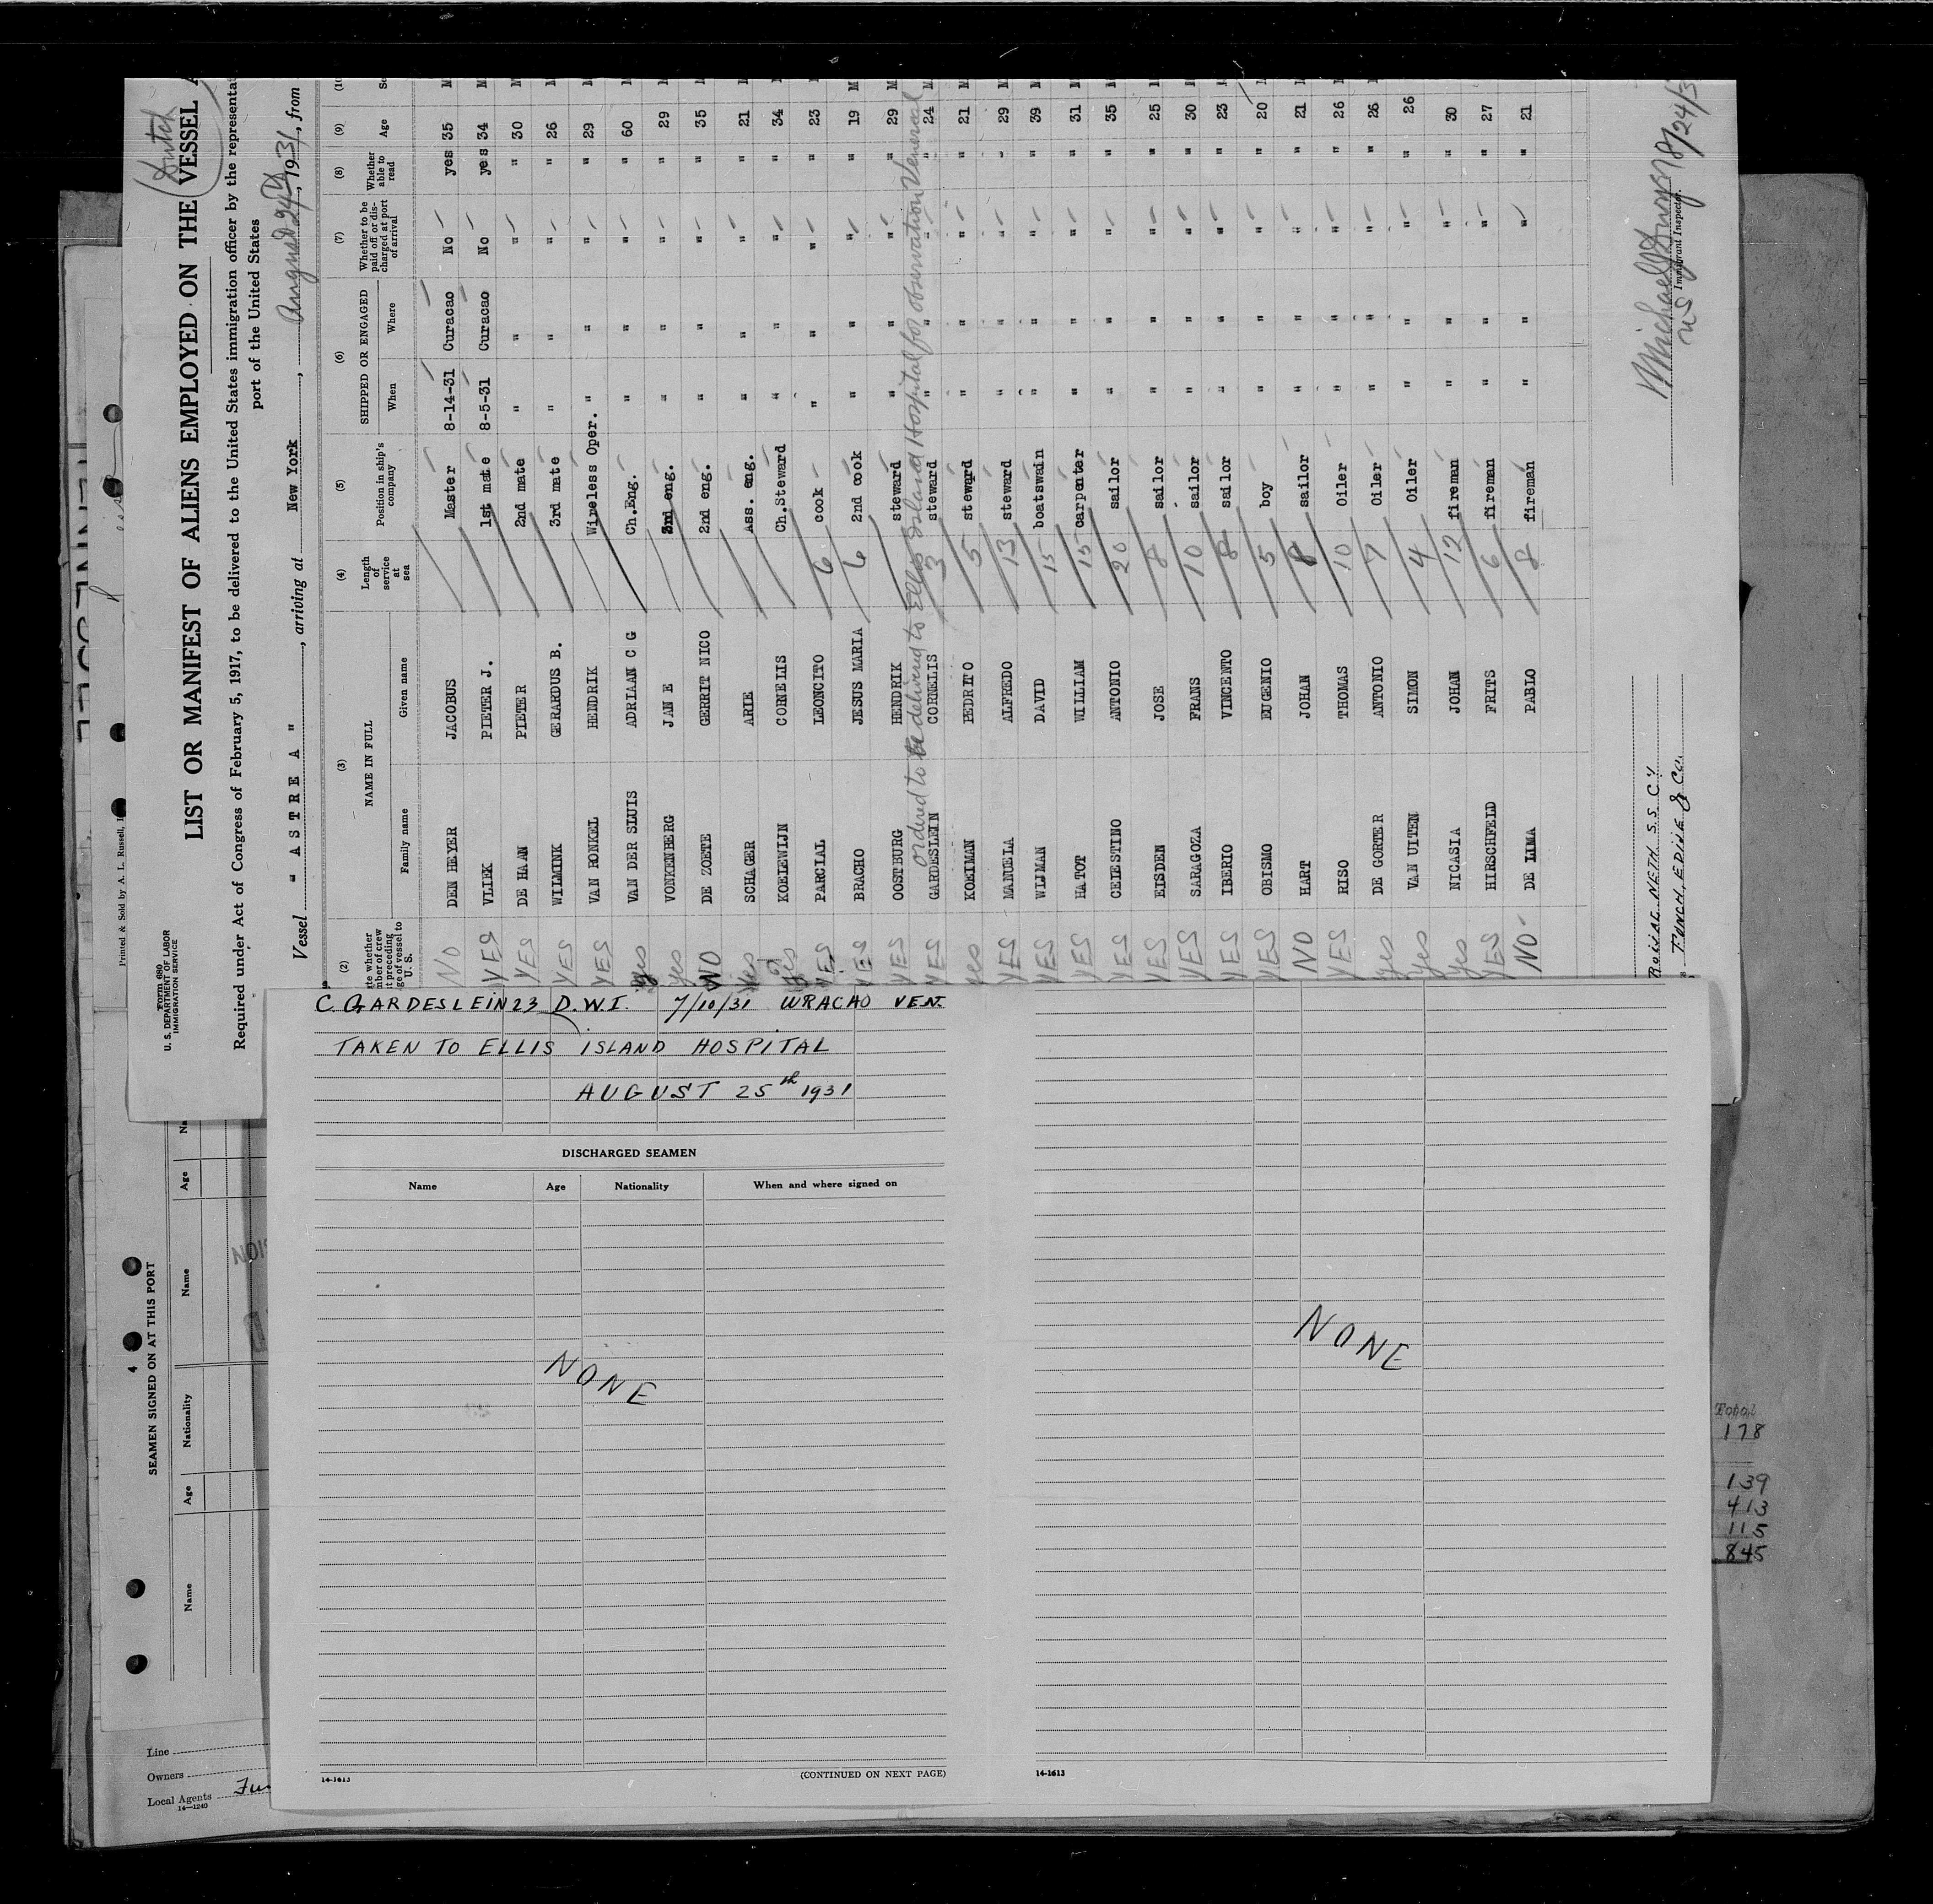 Form 680
U. S. DEPARTMENT OF LABOR
IMMIGRATION SERVICE
Printed & Sold by A. L. Russell,
Dutch
LIST OR MANIFEST OF ALIENS EMPLOYED ON THE VESSEL A
Required under Act of Congress of February 5, 1917, to be delivered to the United States immigration officer by the representa
port of the United States
Vessel " ASTREA ", arriving at New York, August 24th, 1931, from
(2) (3) (4) (5) (6) (7) (8) (9)
NAME IN FULL
Family name Given name
Length of service at sea
Position in ship's company
SHIPPED OR ENGAGED
When Where
Whether to be paid off or discharged at port of arrival
Whether able to read
Age
NO DEN HEYER JACOBUS Master 8-14-31 Curacao No yes 35 M
YES VLIEK PIETER J. 1st mate 8-5-31 Curacao No yes 34 M
YES DE HAAN PIETER 2nd mate " " " " 30
YES WILMINK GERARDUS B. 3rd mate " " " " 26
YES VAN RONKEL HENDRIK Wireless Oper. " " " " 29
yes VAN DER SLUIS ADRIAAN C G Ch.Eng. " " " " 60
yes VONKENBERG JAN E 3rd eng. " " " " 29
NO DE ZOETE GERRIT NICO 2nd eng. " " " " 35
yes SCHAGER ARIE Ass. eng. " " " " 21
yes KOELEWIJN CORNELIS Ch.Steward " " " " 34
YES PARCIAL LEONCITO 6 cook " " " " 23
YES BRACHO JESUS MARIA 6 2nd cook " " " " 19 M
YES OOSTBURG HENDRIK steward " " " " 29 M
ordered to be delivered to Ellis Island Hospital for observation Venereal
YES GARDESLEIN CORNELIS 3 steward " " " " 24 M
yes KOEIMAN PEDRITO 5 steward " " " " 21 M
YES MANUELA ALFREDO 13 steward " " " " 29 M
YES WIJMAN DAVID 15 boatswain " " " " 39
YES HATOT WILLIAM 15 carpenter " " " " 31
YES CELESTINO ANTONIO 20 sailor " " " " 35
YES EISDEN JOSE 8 sailor " " " " 25
YES SARAGOZA FRANS 10 sailor " " " " 30
YES IBERIO VINCENTO 8 sailor " " " " 23
YES OBISMO EUGENIO 5 boy " " " " 20
NO HART JOHAN 8 sailor " " " " 21
YES RISO THOMAS 10 Oiler " " " " 26
yes DE GORTER ANTONIO 7 Oiler " " " " 26
yes VAN UITEN SIMON 4 Oiler " " " " 26
yes NICASIA JOHAN 12 fireman " " " " 30
YES HIRSCHFELD FRITS 6 fireman " " " " 27
NO DE LIMA PABLO 8 fireman " " " " 21
NETH S.S. CY
FUNCH, EDIJE & Co.
8/24/3
US Immigrant Inspector.
C. GARDESLEIN 23 D.W.I. 7/10/31 URACAO VEN.
TAKEN TO ELLIS ISLAND HOSPITAL
AUGUST 25th 1931
DISCHARGED SEAMEN
Name Age Nationality When and where signed on
NONE
14-1613
(CONTINUED ON NEXT PAGE)
NONE
14-1613
4
SEAMEN SIGNED ON AT THIS PORT
Name Age Nationality Name Age
Line
Owners
Local Agents
14-1240
Total
178
139
413
115
845